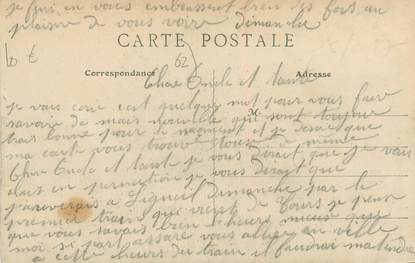 je fini en vous embrassant bien des fois au
plaisir de vous voire dimanche
CARTE POSTALE
62
Correspondance
Adresse
Chère Oncle et tante
je vais écrire cest quelque mot pour vous faire
savoire de mais nouvelle qui sont toujour
trais bonne pour le moment et je desire que
ma carte vous trouve tous de même
Chère Oncle et tante je vous direait que je vais
alais en permission je vous direait que
j'arriverais a Ligueil dimanche par le
premier train que vient de Tours je pense
que vous savais bien l'heure mieux que
moi si part assare vous allier en ville
a cette heure du train il faudrai m'attendre